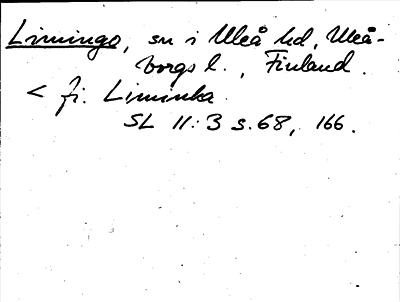 Limingo, sn i Uleå hd, Uleå-
borgs l., Finland.
< fi. Liminka.
SL 11:3 s.68, 166.